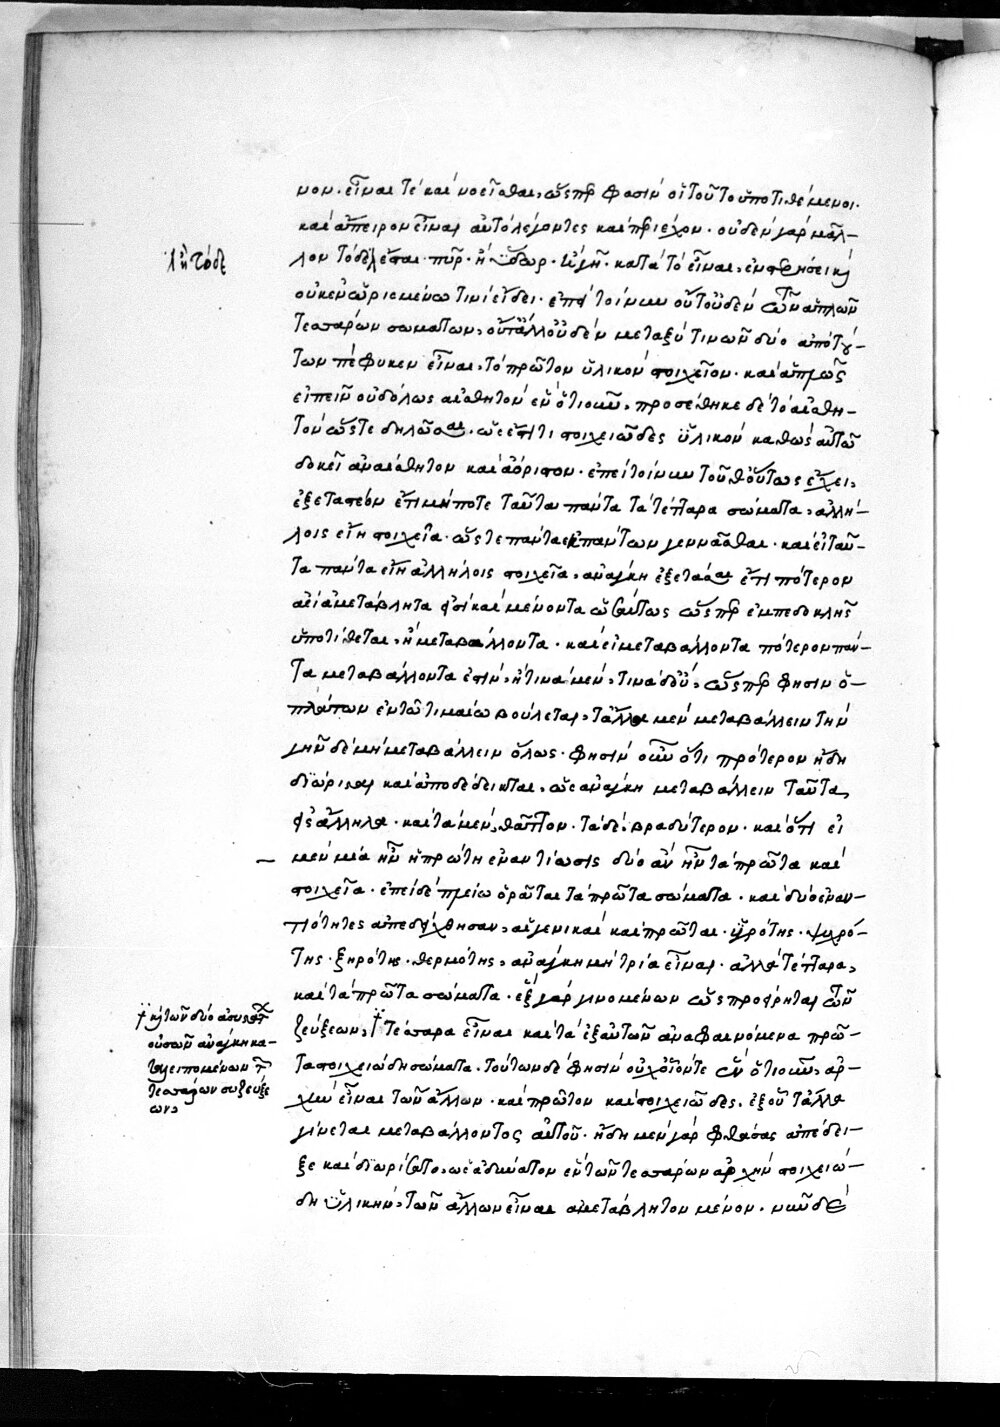 νον. εἶναι τὲ καὶ νοεῖσθαι, ὥσπερ φασὶν οἱ τοῦτο ὑποτιθέμενοι.
καὶ ἄπειρον εἶναι αὐτὸ λέγοντες καὶ περιέχον. οὐδὲν γὰρ μᾶλ-
λον τόδε λέγεται πῦρ. ἢ ὕδωρ. ἢ γῆ. κατὰ τὸ εἶναι, ἐνεργήσει καὶ
οὐκ ἐν ὡρισμένω τινὶ εἴδει. ἐπεὶ τοίνυν οὔτ' οὐδὲν τῶν ἁπλῶν
τεσσάρων σωμάτων, οὔτ' ἄλλο οὐδὲν μεταξύ τινων δύο ἀπὸ τού-
των πέφυκεν εἶναι, τὸ πρῶτον ὑλικὸν στοιχεῖον. καὶ ἁπλῶς
εἰπεῖν οὐδ' ὅλως αἰσθητὸν ἓν ὁτιοῦν, προσέθηκε δὲ τὸ αἰσθη-
τὸν ὥστε δηλῶσαι. ὡς ἔστι τι στοιχειῶδες ὑλικὸν καθὼς αὐτῶ
δοκεῖ ἀναίσθητον καὶ ἀόριστον. ἐπεὶ τοίνυν τοῦθ' οὕτως ἔχει,
ἐξεταστέον ἔτι μήποτε ταῦτα πάντα τὰ τέτταρα σώματα, ἀλλή-
λοις εἴη στοιχεῖα. ὥστε πάντα ἐκ πάντων γεννᾶσθαι. καὶ εἰ ταῦ-
τα πάντα εἴη ἀλλήλοις στοιχεῖα, ἀνάγκη ἐξετάσαι ἔτι πότερον
ἀεὶ ἀμετάβλητά ἐστι καὶ μένοντα ὡσαύτως ὥσπερ ἐμπεδοκλῆς
ὑποτίθεται, ἢ μεταβάλλοντα. καὶ εἰ μεταβάλλοντα πότερον πάν-
τα μεταβάλλοντά ἐστιν, ἢ τινὰ μὲν, τινὰ δ' οὔ, ὥσπερ φησὶν ὁ
πλάτων ἐν τῶ τιμαίω βούλεται, τἄλλα μὲν μεταβάλλειν τὴν
γῆν δὲ μὴ μεταβάλλειν ὅλως. φησὶν οὖν ὅτι πρότερον ἤδη
διώρισται καὶ ἀποδέδεικται, ὡς ἀνάγκη μεταβάλλειν ταῦτα,
εἰς ἄλληλα. καὶ τὰ μὲν, θᾶττον. τὰ δὲ, βραδύτερον. καὶ ὅτι εἰ
μὲν μία ἦν ἡ πρώτη ἐναντίωσις δύο ἂν ἦν τὰ πρῶτα καὶ
στοιχεῖα. ἐπεὶ δὲ πλείω ὁρᾶται τὰ πρῶτα σώματα. καὶ δύο ἐναν-
τιότητες ἀπεδείχθησαν, αἱ γενικαὶ καὶ πρῶται. ὑγρότης. ψυχρό-
της. ξηρότης. θερμότης, ἀνάγκη μὴ τρία εἶναι. ἀλλὰ τέτταρα,
καὶ τὰ πρῶτα σώματα. ἓξ γὰρ γινομένων ὡς προείρηται τῶν
ζεύξεων, τέσσαρα εἶναι καὶ τὰ ἐξ αὐτῶν ἀναφαινόμενα πρῶ-
τα στοιχειώδη σώματα. τούτων δέ φησιν οὐχ οἷόν τε ἓν ὁτιοῦν, ἀρ-
χὴν εἶναι τῶν ἄλλων. καὶ πρῶτον καὶ στοιχειῶδες. ἐξ οὗ τἄλλα
γίνεται μεταβάλλοντος αὐτοῦ. ἤδη μὲν γὰρ φθάσας ἀπέδει-
ξε καὶ διωρίσατο, ὡς ἀδύνατον ἓν τῶν τεσσάρων ἀρχὴν στοιχειώ-
δη ὑλικὴν, τῶν ἄλλων εἶναι ἀμετάβλητον μένον. νῦν δὲ
ἢ τόδε
καὶ τῶν δύο ἀσυστάτων
οὐσῶν ἀνάγκη κα-
ταλειπομένων τῶν
τεσσάρων συζεύξε
ων,